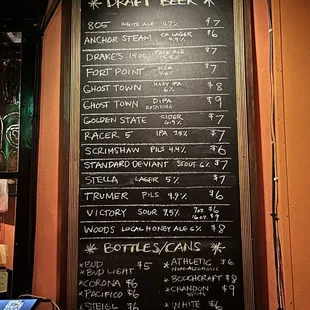 * DRAFT BEER *
805 WHITE ALE 4.7% $7
ANCHOR STEAM CA LAGER 4.9% $6
DRAKE'S 1500 PALE ALE $7
FORT POINT KSA 4.6% $7
GHOST TOWN HAZY $8
GHOST TOWN DIPA ROTATING $9
GOLDEN STATE CIDER 6.9% $7
RACER 5 IPA 7.5% $7
SCRIMSHAW PILS 4.4% $6
STANDARD DEVIANT STOUT 6% $7
STELLA LAGER 5% $7
TRUMER PILS 4.9% $6
VICTORY SOUR 9.5% 7oz $6 16oz $9
WOODS LOCAL HONEY ALE 6% $8
* BOTTLES/CANS *
* BUD
* BUD LIGHT $5
* CORONA $6
* PACIFICO $6
* STEIGL $6
* ATHLETIC $6
NON-ALCOHOLIC
* BOOCHCRAFT $8
* CHANDON $9
SPLITS
* WHITE $6